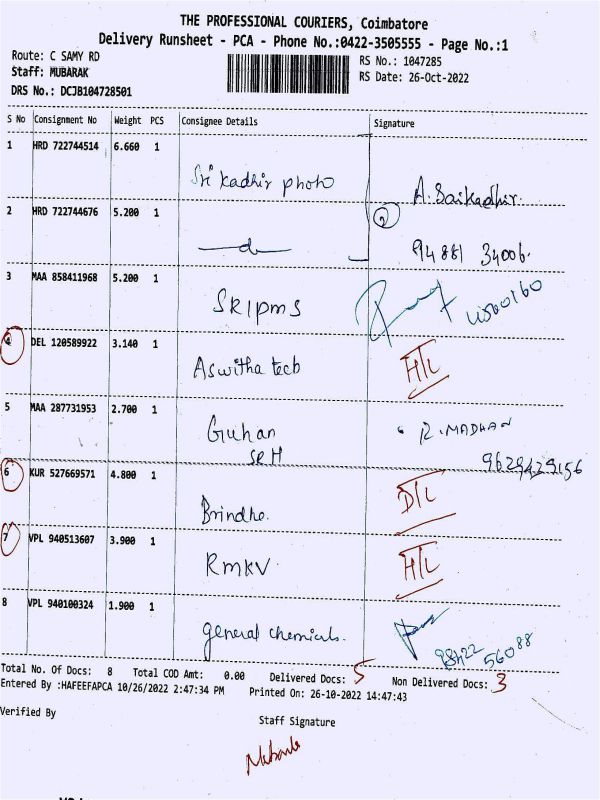 THE PROFESSIONAL COURIERS, Coimbatore
Delivery Runsheet - PCA - Phone No.:0422-3505555 - Page No.:1
Route: C SAMY RD
RS No.: 1047285
Staff: MUBARAK
RS Date: 26-Oct-2022
DRS No.: DCJB104728501
S No Consignment No Weight PCS Consignee Details Signature
1 HRD 722744514 6.660 1 Sri kadhir photo A. Saikadhir.
2 HRD 722744676 5.200 1 d 2 94881 34006.
3 MAA 858411968 5.200 1 SRIPMS
4 DEL 120589922 3.140 1 Aswitha tech H/L
5 MAA 287731953 2.700 1 Guhan R. MADHAN
SRH 9629429156
6 KUR 527669571 4.800 1 Brindha. D/L
7 VPL 940513607 3.900 1 RMKV H/L
8 VPL 940100324 1.900 1 general chemicals.
98422 56088
Total No. Of Docs: 8 Total COD Amt: 0.00 Delivered Docs: 5 Non Delivered Docs: 3
Entered By :HAFEEFAPCA 10/26/2022 2:47:34 PM Printed On: 26-10-2022 14:47:43
Verified By
Staff Signature